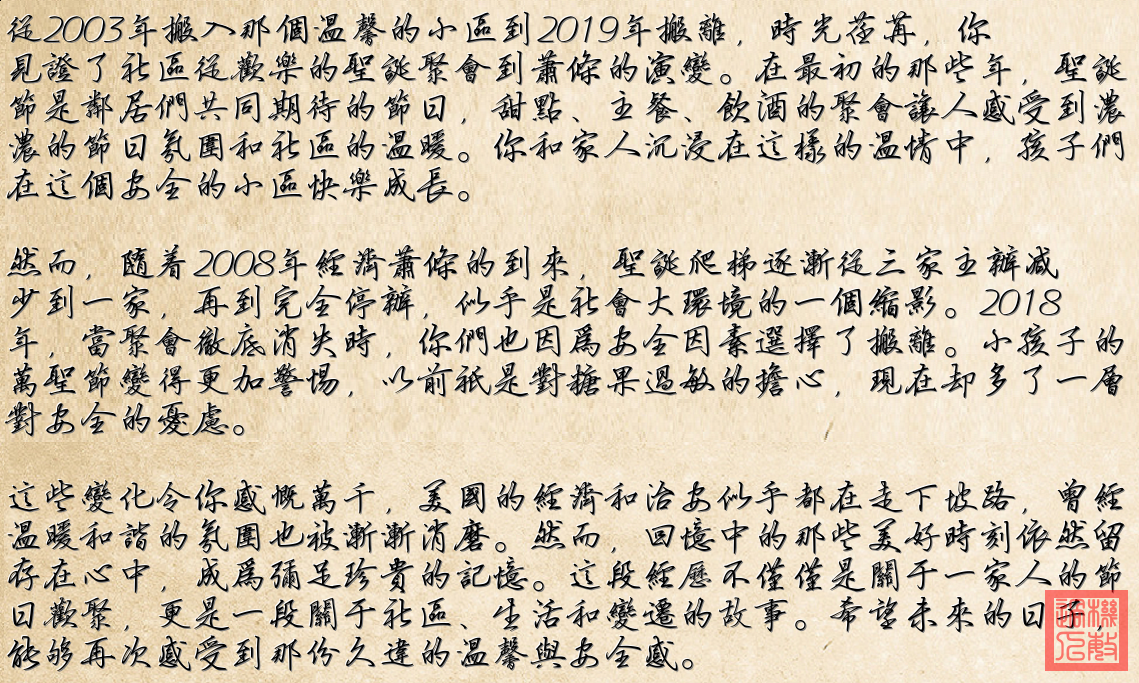 從2003年搬入那個溫馨的小區到2019年搬離，時光荏苒，你
見證了社區從歡樂的聖誕聚會到蕭條的演變。在最初的那些年，聖誕
節是鄰居們共同期待的節日，甜點、主餐、飲酒的聚會讓人感受到濃
濃的節日氛圍和社區的溫暖。你和家人沉浸在這樣的溫情中，孩子們
在這個安全的小區快樂成長。
然而，隨着2008年經濟蕭條的到來，聖誕爬梯逐漸從三家主辦減
少到一家，再到完全停辦，似乎是社會大環境的一個縮影。2018
年，當聚會徹底消失時，你們也因為安全因素選擇了搬離。小孩子的
萬聖節變得更加警惕，以前祇是對糖果過敏的擔心，現在却多了一層
對安全的憂慮。
這些變化令你感慨萬千，美國的經濟和治安似乎都在走下坡路，曾經
溫暖和諧的氛圍也被漸漸消磨。然而，回憶中的那些美好時刻依然留
存在心中，成為彌足珍貴的記憶。這段經歷不僅僅是關于一家人的節
日歡聚，更是一段關于社區、生活和變遷的故事。希望未來的日子，
能够再次感受到那份久違的溫馨與安全感。